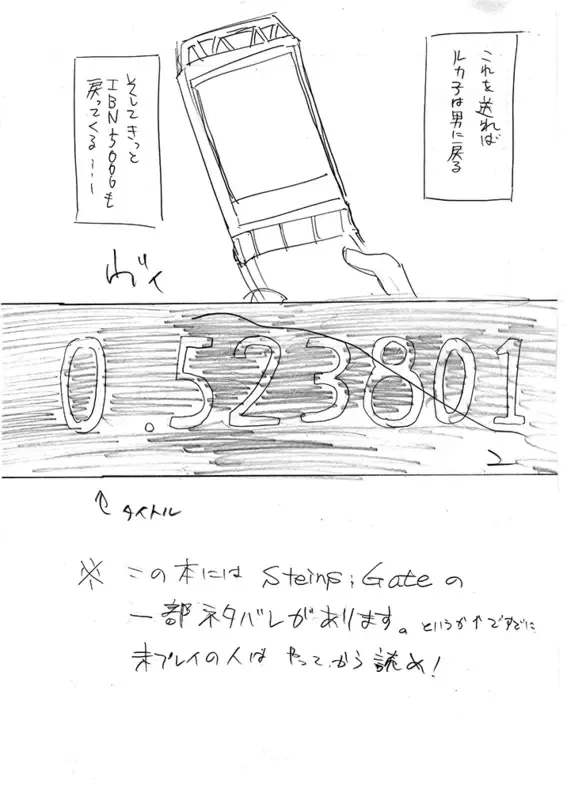 これを送れば
ルカ子は男に戻る
そしてきっと
IBN5000も
戻ってくる・・・
ヴィ
0.523801
↑タイトル
※ この本には Steins;Gateの
一部ネタバレがあります。というか↑ですでに
未プレイの人は やってから読め!